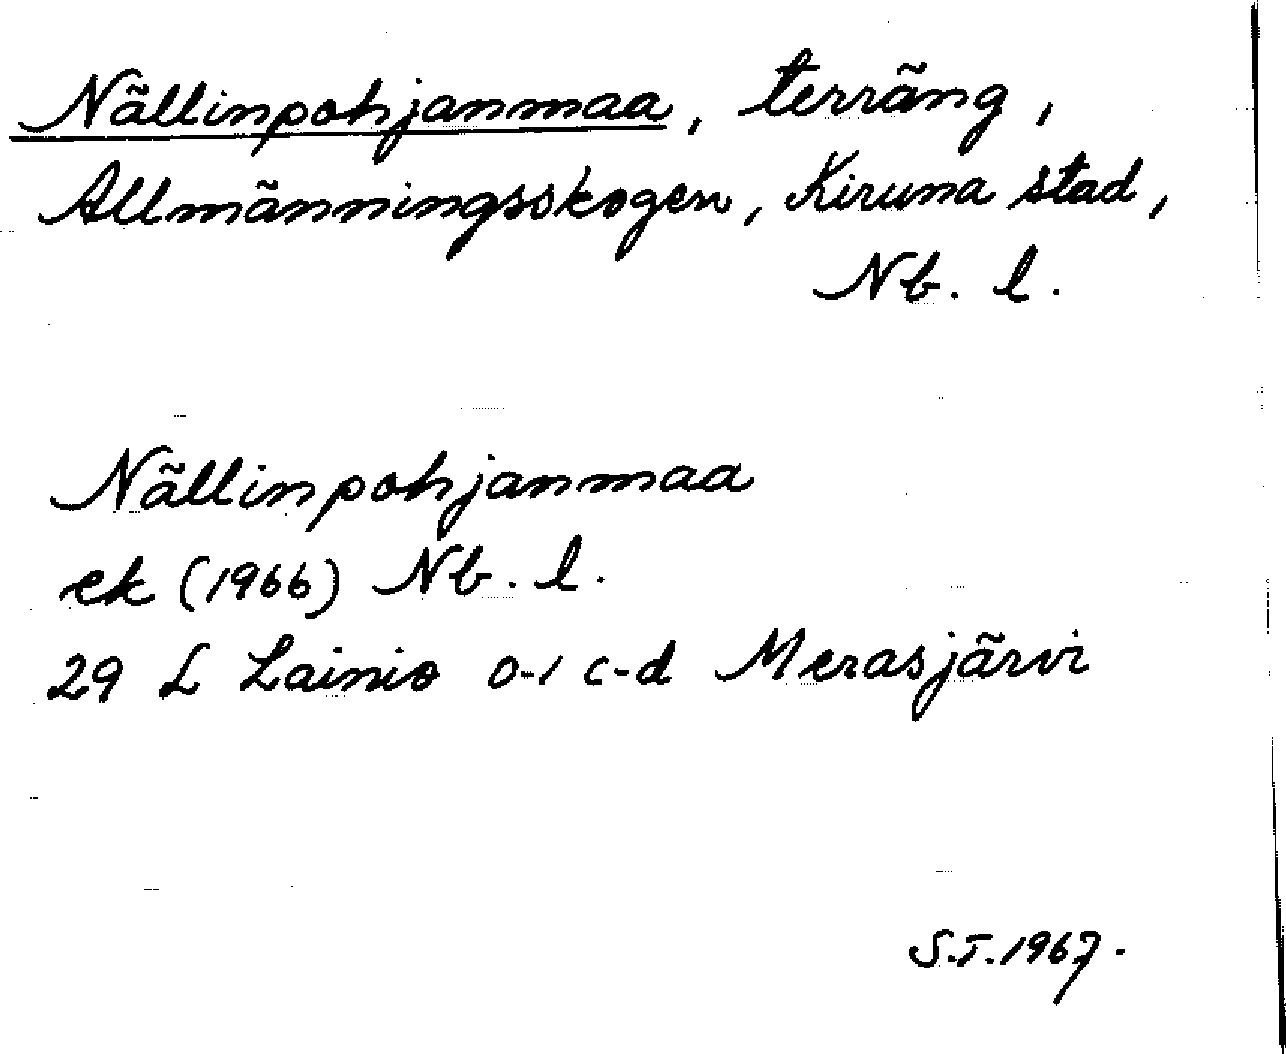 Nällinpohjanmaa, terräng,
Allmänningsskogen, Kiruna stad,
Nb. l.
Nällinpohjanmaa
ek (1966) Nb. l.
29 L Lainio 0-1 c-d Merasjärvi
S.T. 1967.